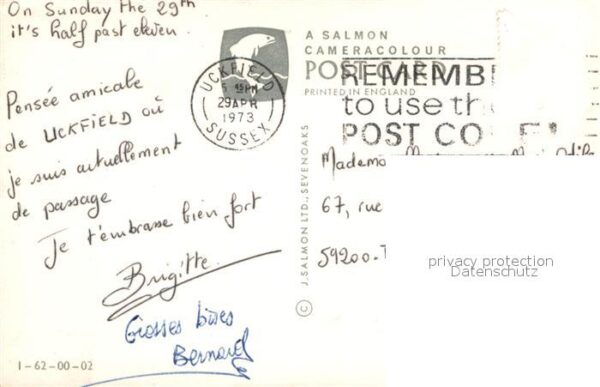 On Sunday the 29th
it's half past eleven.
Pensée amicale
de UCKFIELD où
je suis actuellement
de passage
Je t'embrasse bien fort
Brigitte.
Grosses bises
Bernard
1-62-00-02
A SALMON
CAMERACOLOUR
POST CARD
PRINTED IN ENGLAND
UCKFIELD
PM
29 APR
1973
SUSSEX
REMEMB
to use th
POST CO
© J. SALMON LTD., SEVENOAKS
67, rue
59200-T
privacy protection
Datenschutz